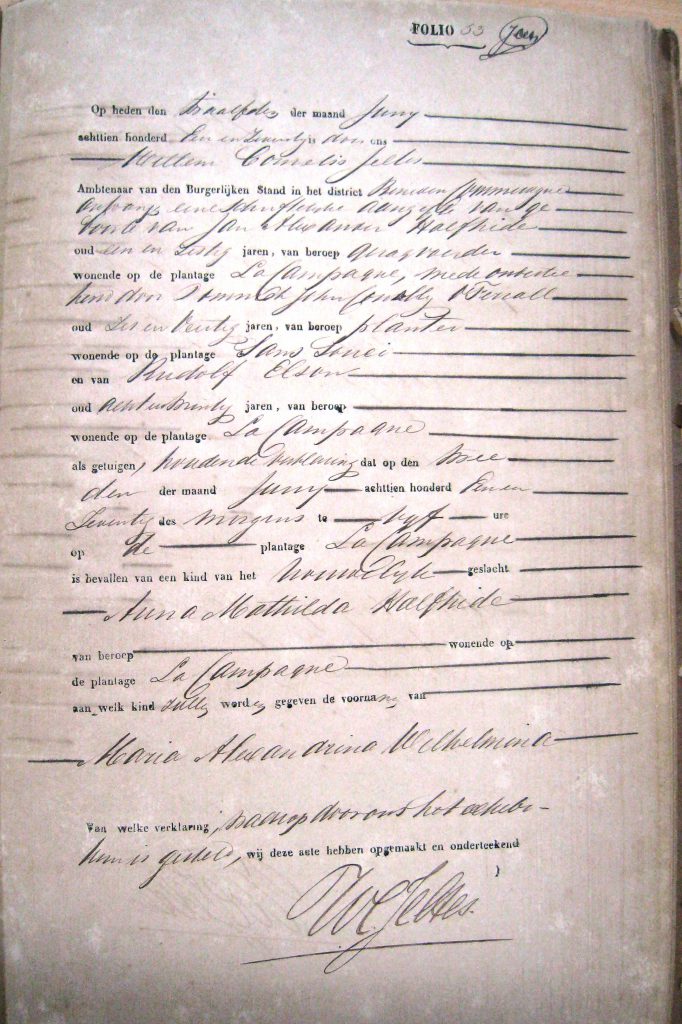 FOLIO 53
Op heden den twaalfden der maand Juny
achttien honderd Een en Zeventig is door ons
Willem Cornelis Jelles
Ambtenaar van den Burgerlijken Stand in het district Beneden Commewyne
ontvangen eene schriftelyke aangifte van ge
boorte van Jan Alexander Halfhide
oud een en Zestig jaren, van beroep
wonende op de plantage La Campagne, mede ondertee
kend door John Conolly O'Ferrall
oud Zes en Veertig jaren, van beroep planter
wonende op de plantage Sans Souci
en van Rudolf Elson
oud jaren, van beroep
wonende op de plantage La Campagne
als getuigen, houdende verklaring dat op den twee
den der maand Juny achttien honderd Een en
Zeventig des morgens te vyf ure
op de plantage La Campagne
is bevallen van een kind van het vrouwelyk geslacht
Anna Mathilda Halfhide
van beroep wonende op
de plantage La Campagne
aan welk kind zullen worden gegeven de voornamen van
Maria Alexandrina Wilhelmina
Van welke verklaring, waarop door ons het
is gesteld, wij deze acte hebben opgemaakt en onderteekend
WCJelles.